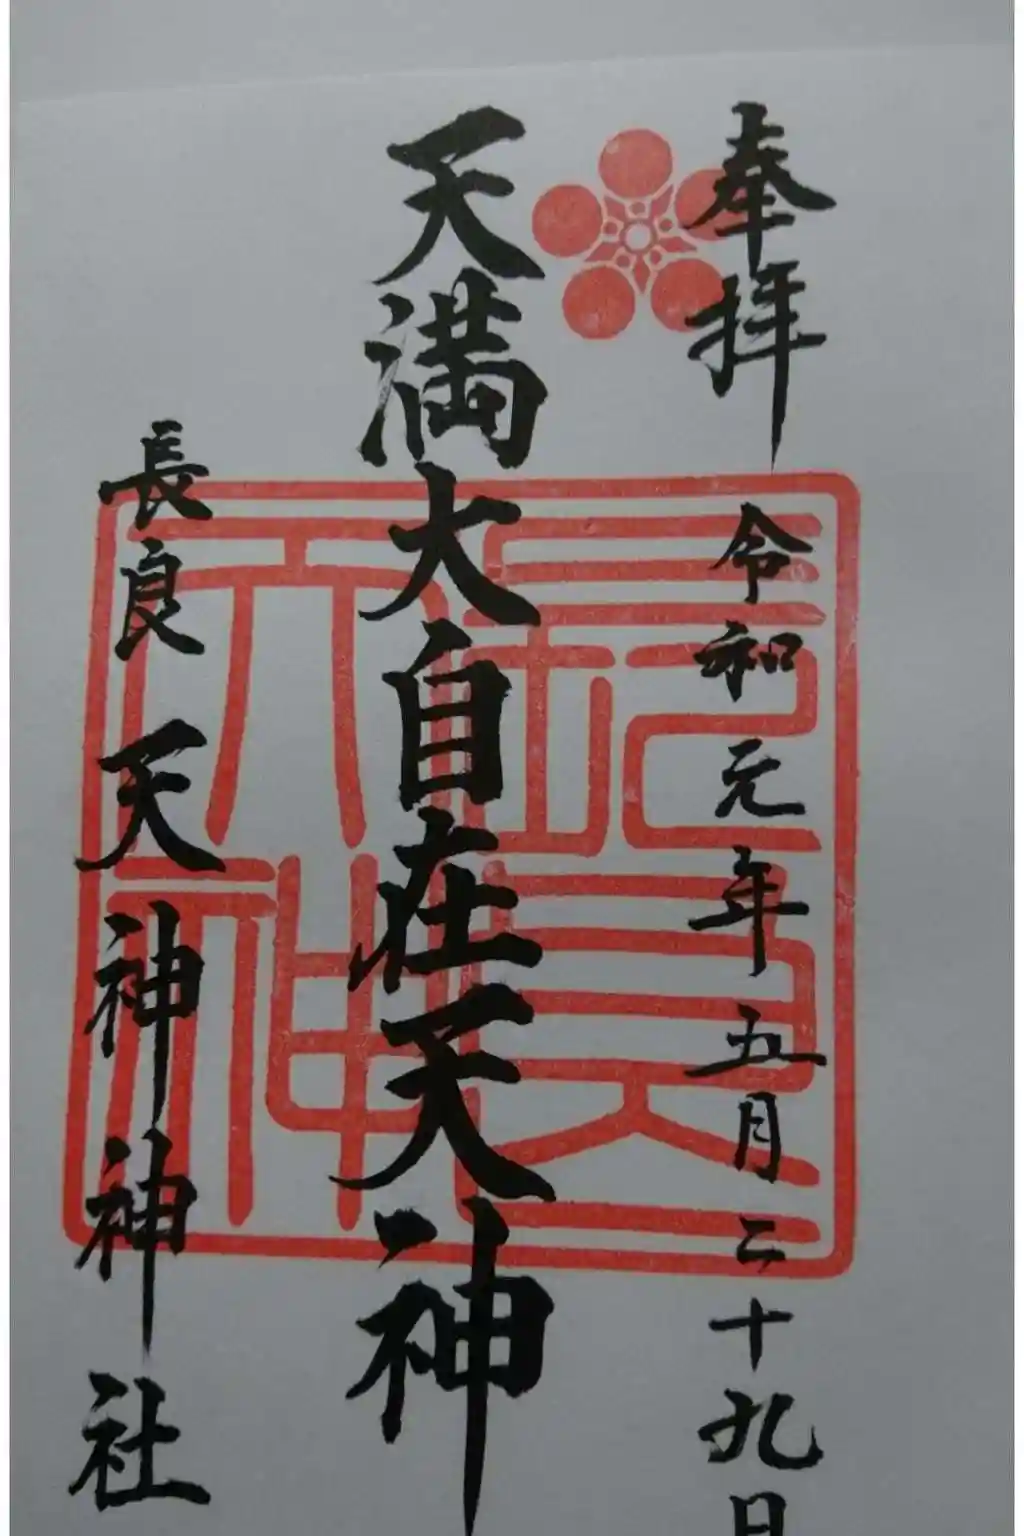 奉拝
令和元年五月二十九日
天満大自在天神
長良天神神社
長良天神